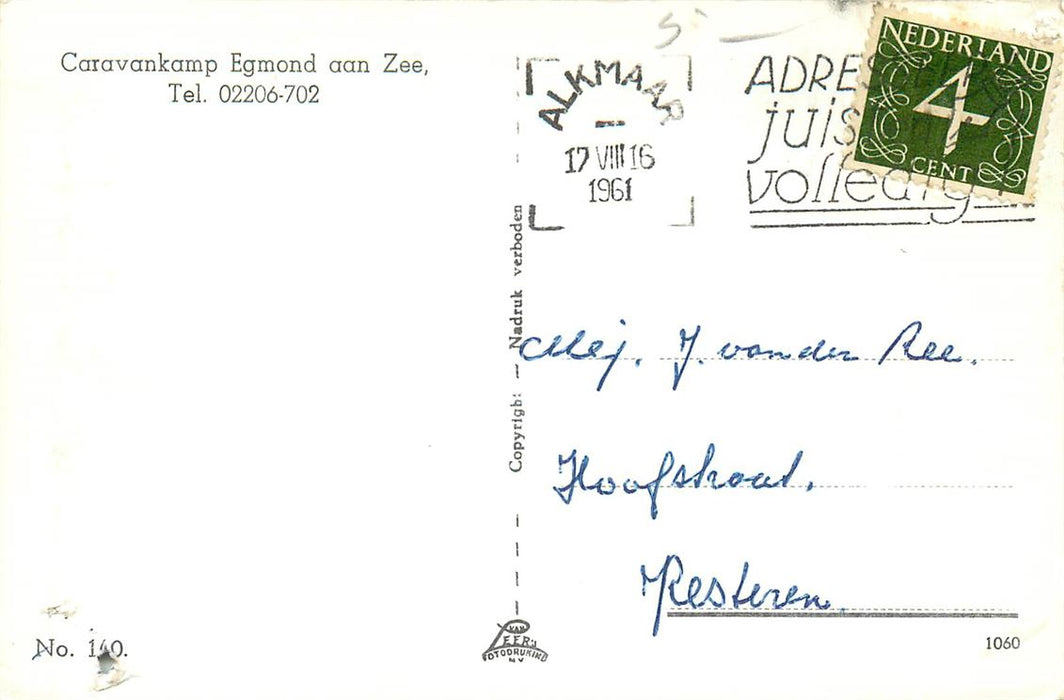 Caravankamp Egmond aan Zee,
Tel. 02206-702
ALKMAAR
17 VIII 16
1961
ADRES
juis
volledig
NEDERLAND
4
CENT
Copyright — Nadruk verboden
Mej. J. van der Ree.
Hoofstraat.
Kesteren.
No. 140.
VAN
LEER's
FOTODRUKIND
NV
1060